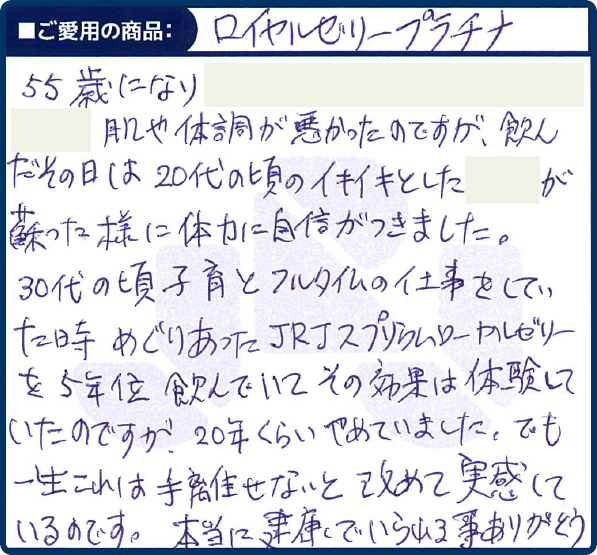 ■ご愛用の商品: ロイヤルゼリープラチナ
55歳になり
肌や体調が悪かったのですが、飲ん
だその日は20代の頃のイキイキとした が
蘇った様に体力に自信がつきました。
30代の頃子育とフルタイムの仕事をしてい
た時めぐりあったJRJスプリームローヤルゼリー
を5年位飲んでいてその効果は体験して
いたのですが、20年くらいやめていました。でも
一生これは手離せないと改めて実感して
いるのです。本当に健康でいられる事ありがとう